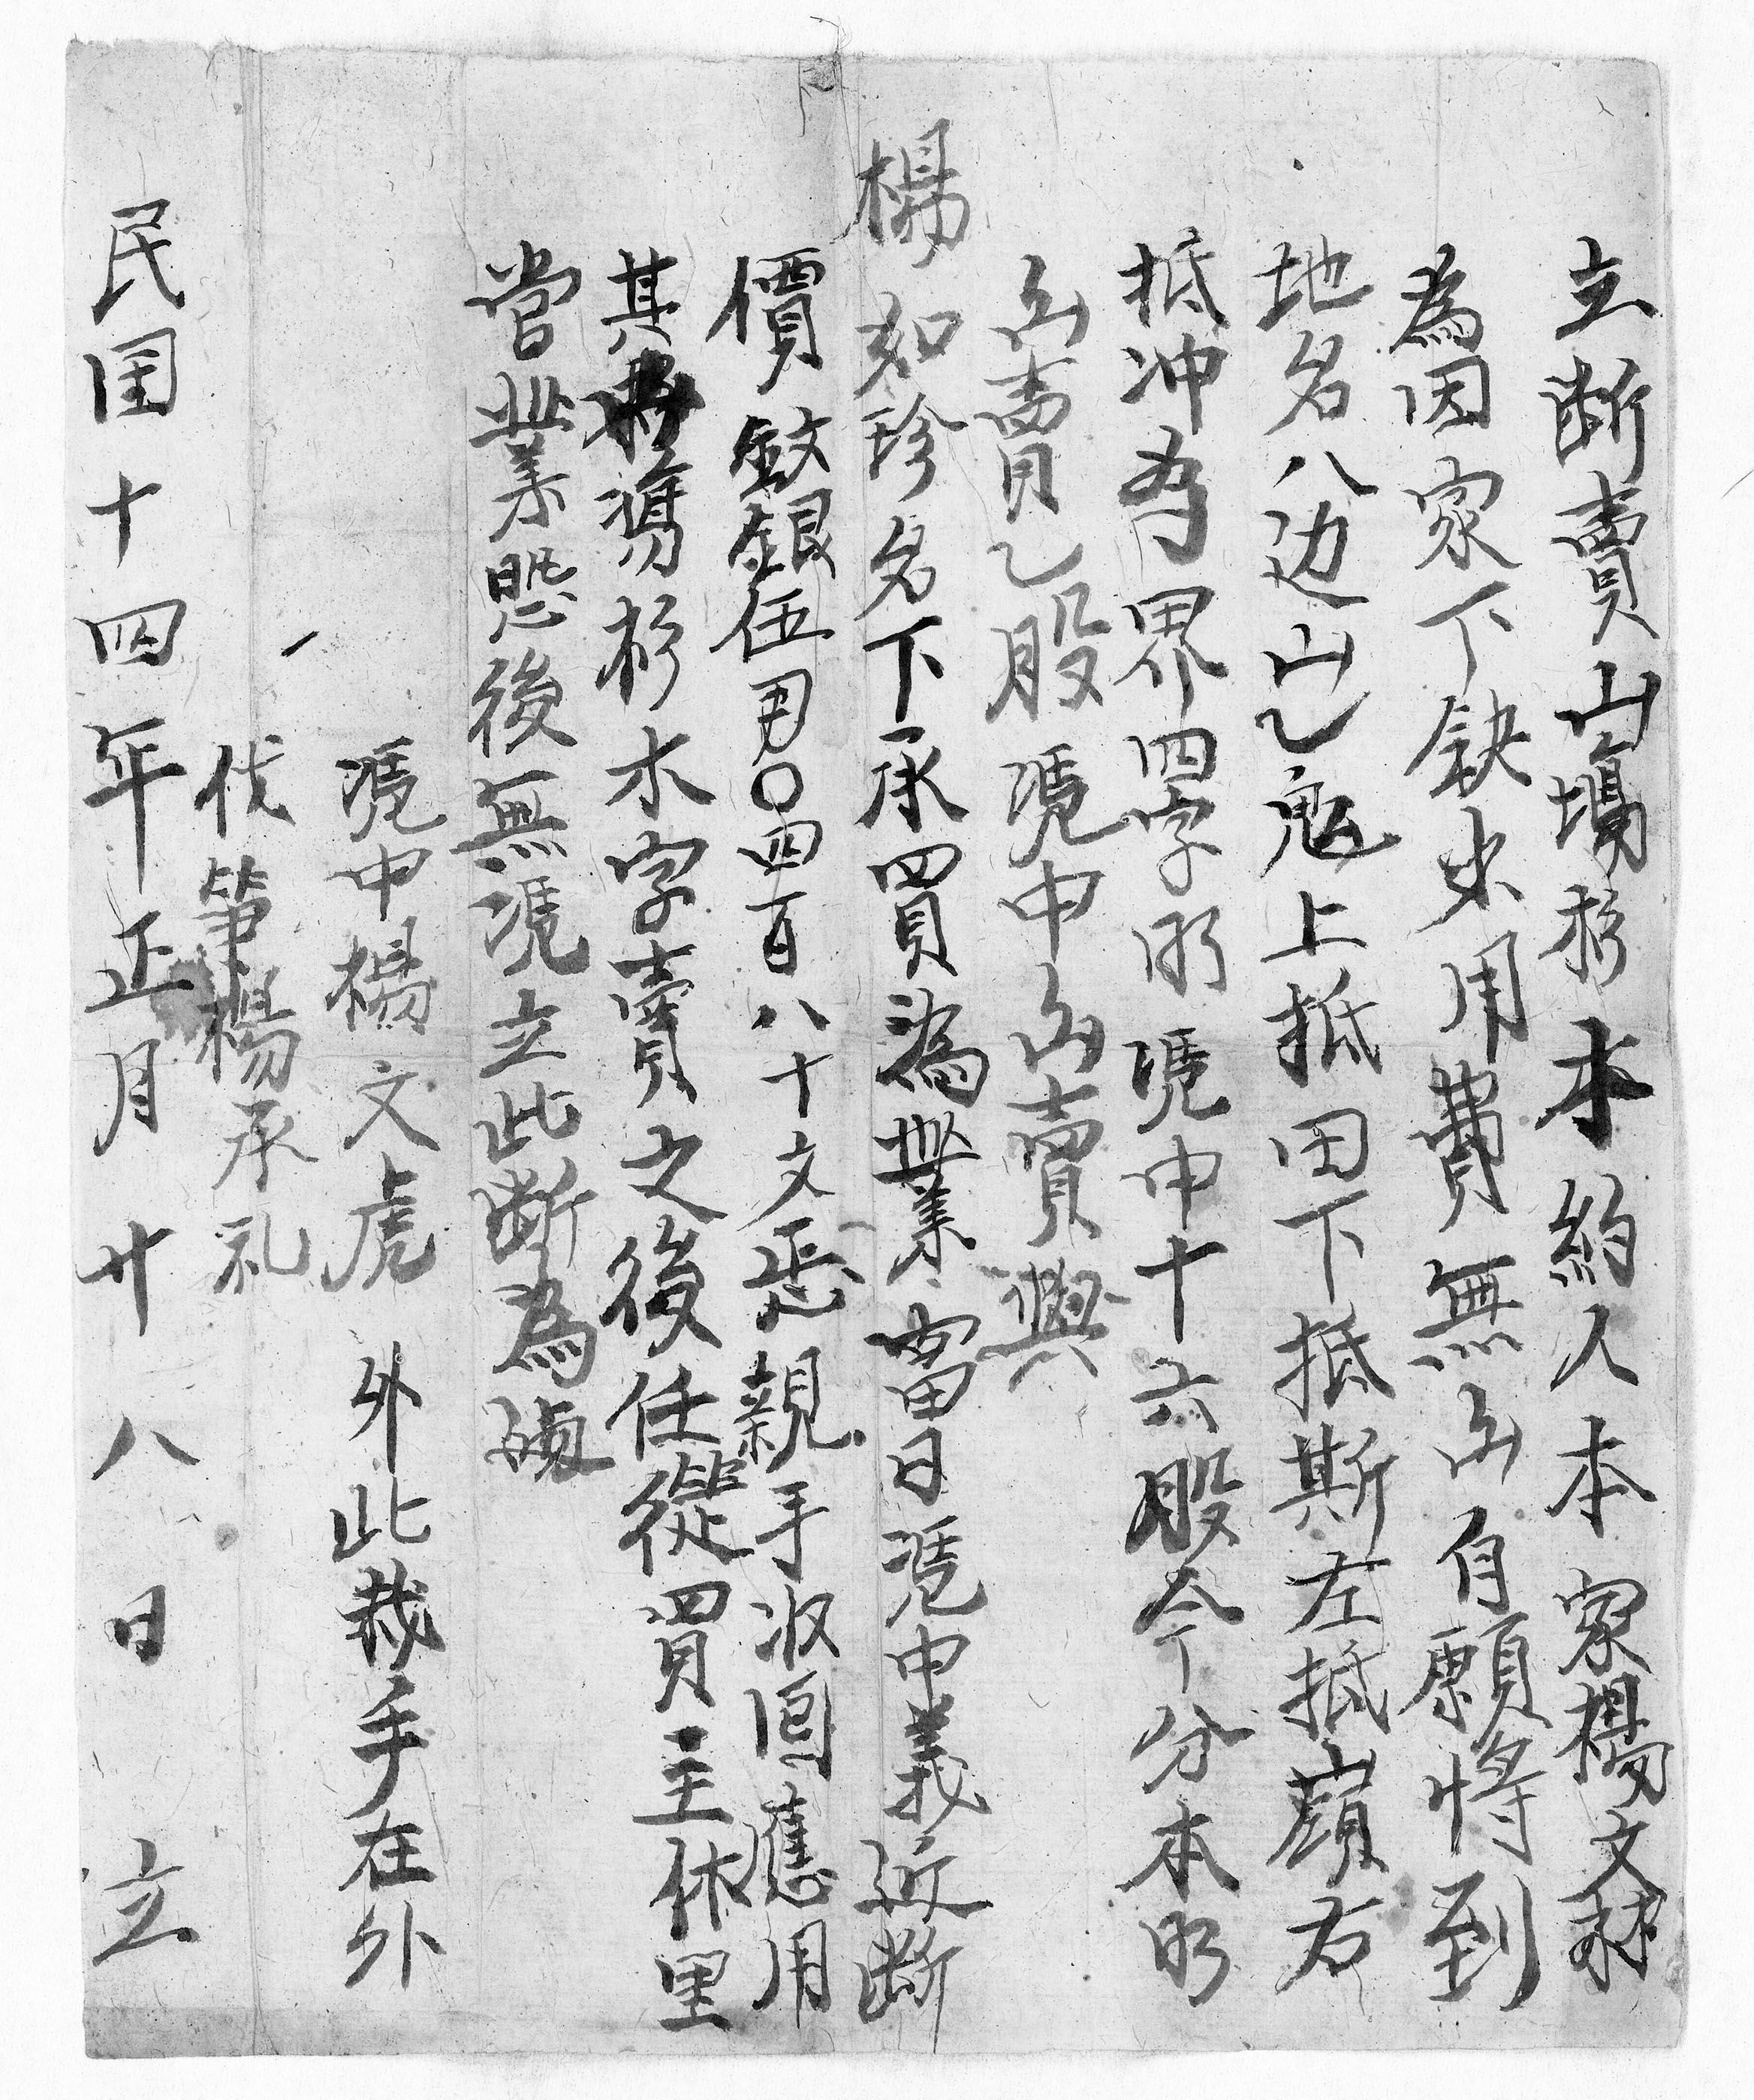 立断賣山塲杉木約人本家楊文彩
為因家下缺少用費無出自願將到
地名八边山乙塊上抵田下抵斯左抵嶺右
抵冲為界四字明凴中十六股今分本明
出賣乙股凴中出賣與
楊如珍名下承買為業當日凴中義近断
價紋銀伍両〇四百八十文悉親手收回應用
其塲杉木字賣之後任從買主休理
當業恐後無凴立此断為據
凴中楊文虎 外此裁手在外
伐筆楊承礼
民国十四年正月廿八日立